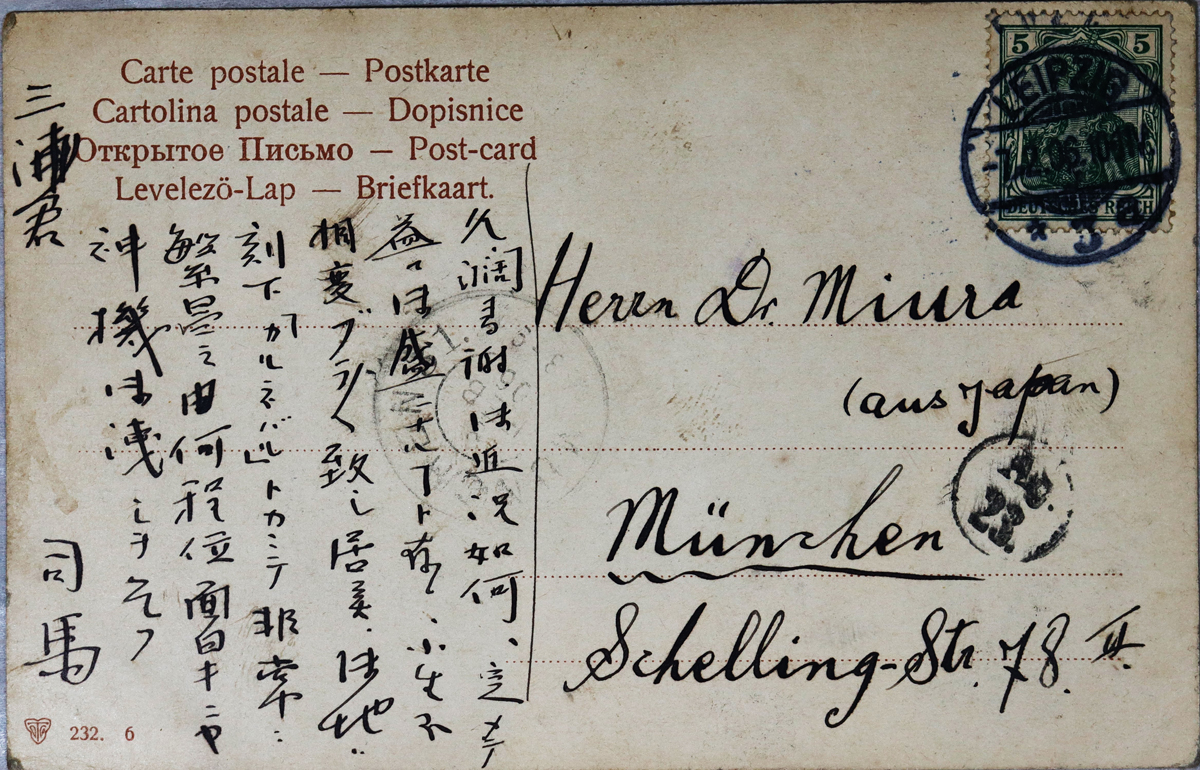 Carte postale — Postkarte
Cartolina postale — Dopisnice
Открытое Письмо — Post-card
Levelező-Lap — Briefkaart.
5 5
DEUTSCHES REICH
LEIPZIG
3
Herrn Dr. Miura
(aus Japan)
München
Schelling-Str. 78. II.
23.
久濶多謝御近況如何、定メテ
益々御盛ニナル丁ト存候、小生不
相変ブラ〱致し居候、御地ハ
刻下「カルネバル」トカニテ非常ニ
繁昌之由何程位面白キニヤ
神機御洩シヲ乞フ
司馬
三浦君
232. 6